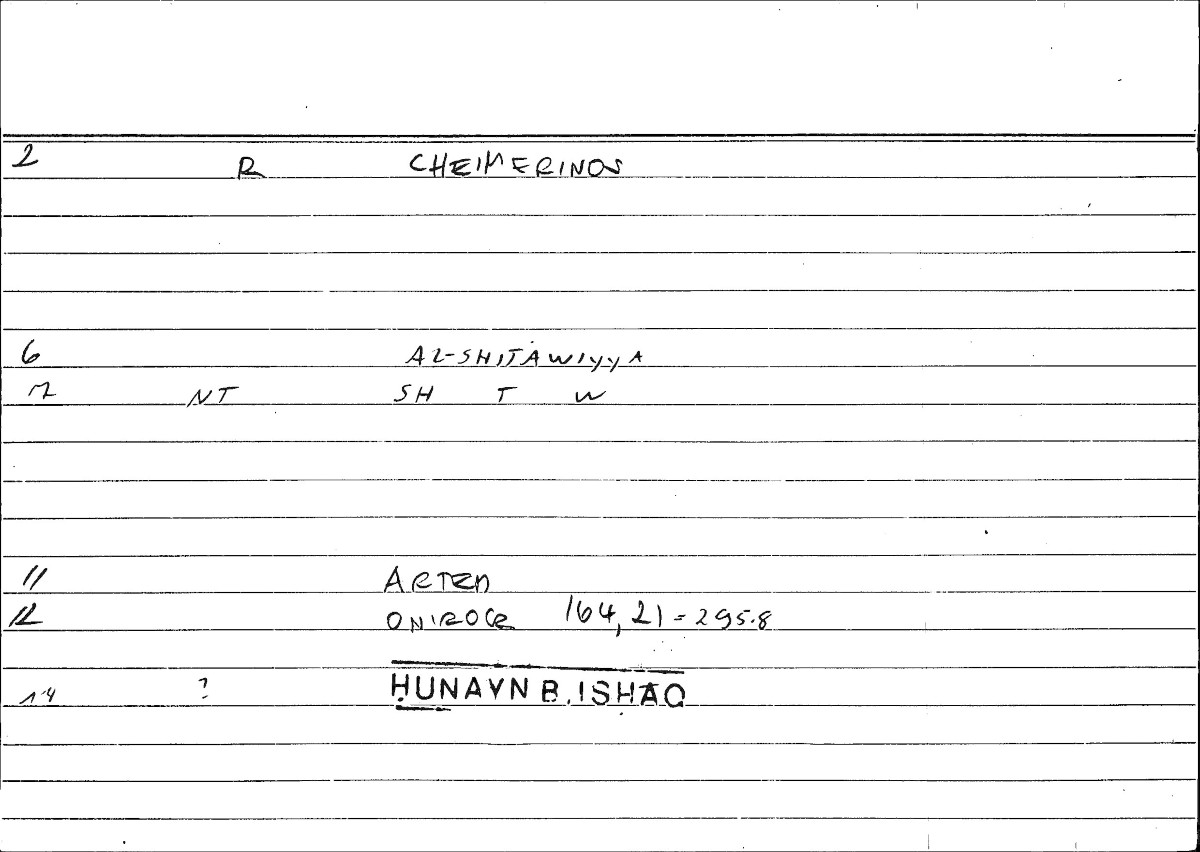 2 R CHEIMERINOS
6 AL-SHITĀWIYYA
7 NT SH T W
11 ARTEM
12 ONIROCR 164,21 = 295.8
14 ? ḤUNAYN B. ISḤĀQ